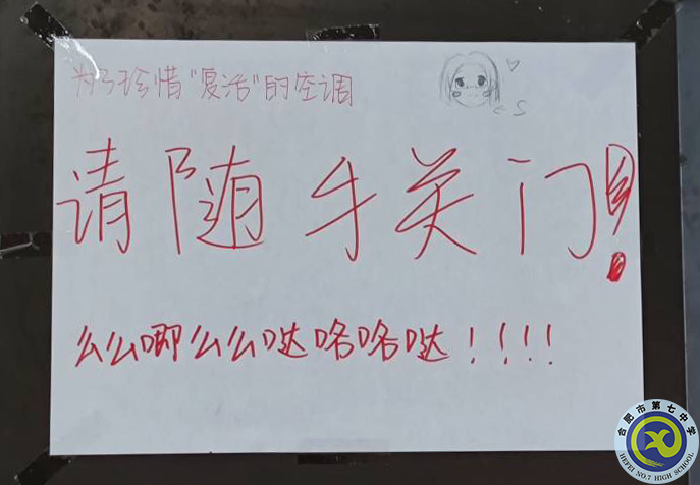 为了珍惜“复活”的空调
请随手关门!
么么唧么么哒咯咯哒!!!!
合肥市第七中学
HEFEI NO.7 HIGH SCHOOL